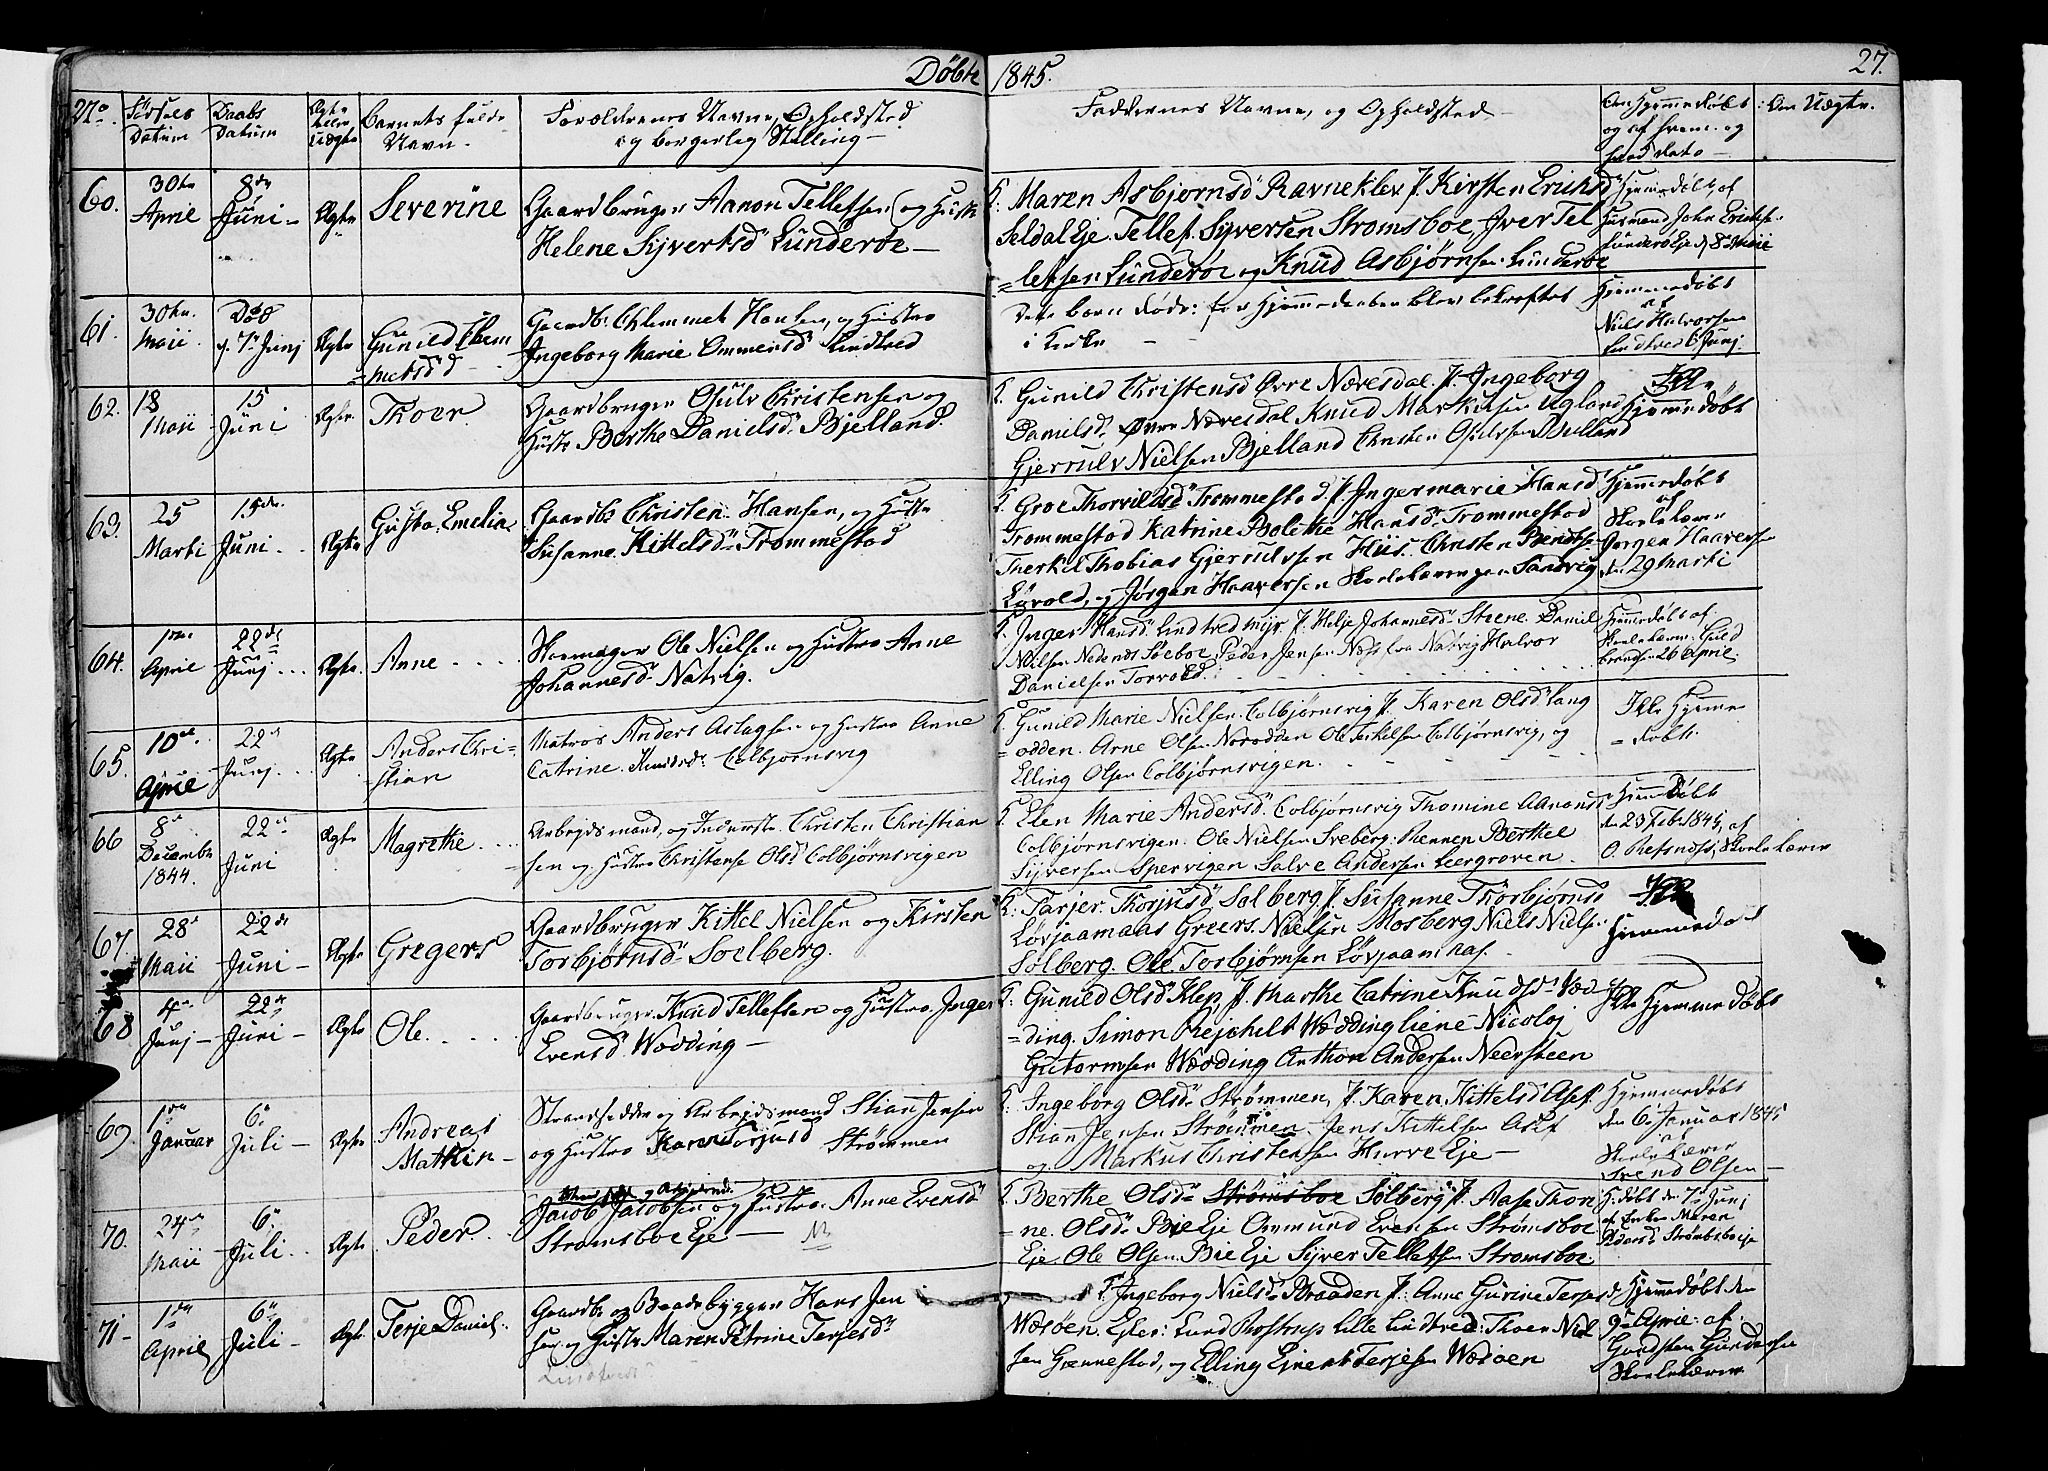 Döbte 1845. 27.
No. Födsels Datum Daabs Datum Ægte eller uægte Barnets fulde Navn. Forældrenes Navne, Opholdsted og borgerlig Stilling Faddernes Navne, og Opholdsted Om Hjemmedøbt og af hvem og hvad Dato Om Uægte.
60. 30te April 8de Juni Ægte Severine
Gaardbruger Aanon Tellefsen og Hustr
Helene Syvertsd Lunderöe
F. Maren Asbjørnsd Ravneklev J. Kirsten Ericksd
Seldal Eje. Tellef Syversen Stromsboe, Iver Tel
=lefsen Lunderöe og Knud Asbjørnsen Lunderöe
Hjemmedöbt af
Husmand John Erichs
Lunderö Eje d 8 Maii
61. 30te Maii Död d. 7 Junj Ægte Gunild Clem
=metsd
Gaardb. Clemmet Hansen, og Hustro
Ingeborg Marie Ommensd Lindtved
Dette barn döde for Hjemmedaaben blev bekræftet
i Kirke
Hjemmedöbt
af
Niels Halvorsen
Lindtved 6 Junj.
62. 18 Maii 15 Juni Ægte Thoer
Gaardbruger Osulv Christensen og
Hustr Berthe Danielsd Bjelland.
F. Gunild Christensd Øvre Næresdal J. Ingeborg
Danielsd Øvre Næresdal Knud Markusen Ugland
Gjerrulv Nielsen Bjelland Christen Osulvsen Bjelland
Ikke
Hjemmedöbt
63. 25 Marti 15de Juni Ægte Gusta Emelia
Gaardb Christen Hansen, og Hustr
Susanne Kittelsd Trommestad
F. Groe Thorvildsd Trommestad, J. Ingermarie Hansd
Trommestad Katrine Bolethe Hansd Trommestod
Therkil Thobias Gjerulvsen Hiis. Christen Berntse
Lövold, og Jørgen Haaversen Skolelærer Sandvig
Hjemmedöbt
af
Skolelærer
Jørgen Haaversen
den 29 Marti
64. 1ste April 22de Junj Ægte Anne
Skomager Ole Nielsen og Hustro Anne
Johannesd Natvig.
F. Inger Hansd Lindtved myr J. Helje Johannesd Steene Daniel
Nielsen Nedenæs Soeboe Peder Jensen Natvig Halvor
Danielsen Torvold.
Hjemmedöbt af
Skolelærer Guld
brandsen 26 April
65. 10de April 22de Junj Ægte Anders Chri=
=stian
Matros Anders Aslagsen og Hustro Anne
Catrine Knudsd Colbjornsvig
F. Gunild Marie Nielsen Colbjørnsvig J. Karen Olsd Lang
=odden. Arne Olsen Norodden Ole Terkelsen Colbjørnsvig, og
Elling Olsen Colbjørnsvigen.
Ikke Hjemme
=döbt.
66 8de Decembr 1844. 22de Juni Ægte Magrethe
Arbejdsmand, og Inderste Christen Christian
sen og Hustro Christense Olsd Colbjørnsvigen
F. Elen Marie Andersd Colbjørnsvig Thomine Aanonsd
Colbjørnsvigen. Ole Nielsen Sveberg. Rennen Berthel
Syversen Spervigen Salve Andersen Leergroven.
Hjemmedöbt
den 23 Feb. 1845, af
O. Refsnæss, Skolelærer
67. 28de Maii 22de Juni Ægte Gregers
Gaardbruger Kittel Nielsen og Kirsten
Torbjørnsd Soelberg.
F. Tarjer Thorjusd Solberg, J. Susanne Thorbjørnsd
Lövjaamaas Greers. Nielsen Mosberg Niels Nielsen
Solberg. Ole Torbjørnsen Lövjaamaas.
Ikke
Hjemmedöbt
68 4de Junj 22de Juni Ægte Ole
Gaardbruger Knud Tellefsen og Hustro Inger
Evensd Wædding
F. Gunild Olsd Klep, J. Marthe Catrine Knudsd Wæd
=ding. Simon Rejchelt Wæddingliene Nicoloj
Gutormsen Wædding Anthon Andersen Neersteen
Ikke Hjemmedöbt
69. 1ste Januar 6te Juli Ægte Andreas
Mathin
Strandsidder og Arbejdsmand Stian Jensen
og Hustro Karen Torjusd Strømmen
F. Ingeborg Olsd Strømmen, J. Karen Kittelsd Asef
Stian Jensen Strømmen. Jens Kittelsen Asef
og Markus Christensen Hurve Eje
Hjemmedöbt
den 6 Januar 1845
af
Skolelærer
Svend Olsen
70. 24de Maii 6te Juli Ægte Peder
Jacob Jacobsen og Hustro Anne Evensd
Stromsboe Eje NB
F. Berthe Olsd Strømsboe Solberg J. Aase Thon
=ne. Olsd Bie Eje Ommund Evensen Strømsboe
Eje Ole Olsen Bie Eje Syver Tellefsen Stromsboe.
H.döbt den 7 Junj
af Enken Maren
Pedersd Strömsboeje
71 1ste April 6te Juli Ægte Terje Daniel
Gaardb og Baadebygger Hans Jen
sen og Hustr Maren Petrine Terjesd
Lindtved
F. Ingeborg Nielsd Braaden J. Anne Gurine Terjesd
Wæröen. Eler Lund Rostrup Lille Lindtved: Thoer Niel
sen Grennestad, og Elling Ejvent Terjesen Wæröen
Hjemmedöbt den
9de April af
Gundsten Gundersen
Skolelærer